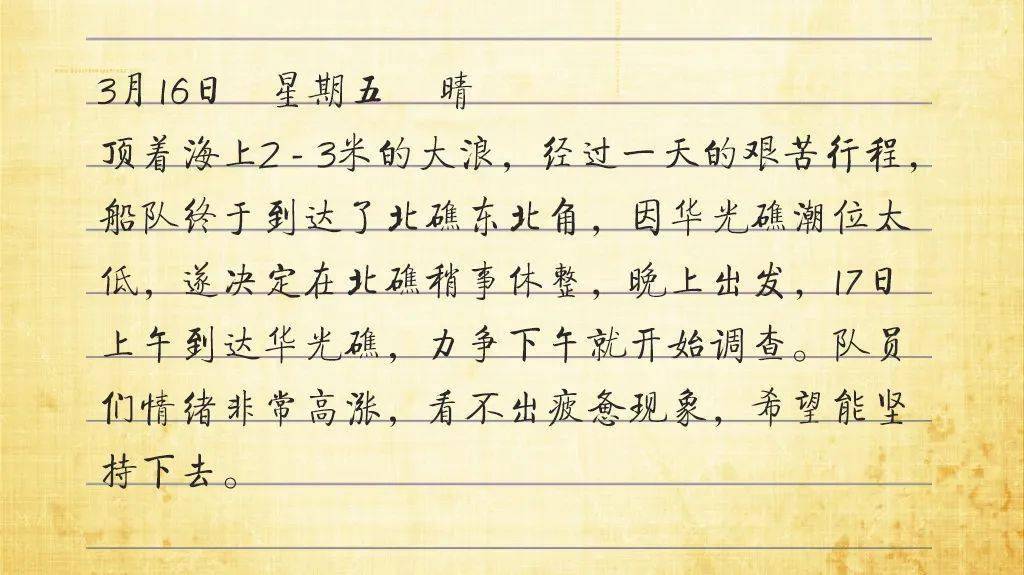 3月16日 星期五 晴
顶着海上2-3米的大浪，经过一天的艰苦行程，
船队终于到达了北礁东北角，因华光礁潮位太
低，遂决定在北礁稍事休整，晚上出发，17日
上午到达华光礁，力争下午就开始调查。队员
们情绪非常高涨，看不出疲惫现象，希望能坚
持下去。